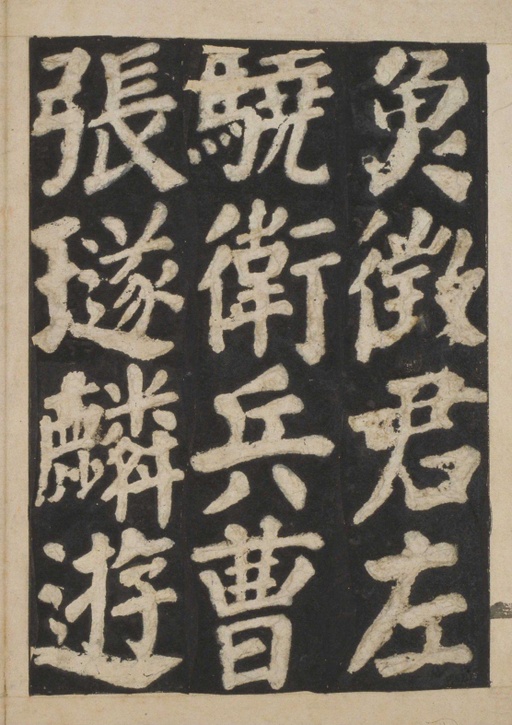 魚徵君左
驍衛兵曹
張璲麟遊